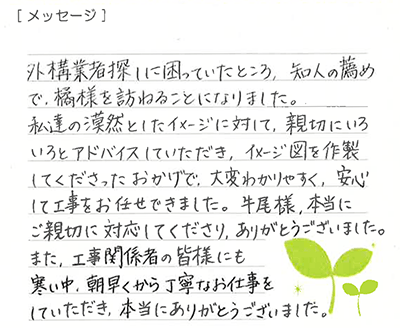 [メッセージ]
外構業者探しに困っていたところ, 知人の薦め
で, 橘様を訪ねることになりました。
私達の漠然としたイメージに対して, 親切にいろ
いろとアドバイスしていただき, イメージ図を作製
してくださったおかげで, 大変わかりやすく, 安心
して工事をお任せできました。牛尾様, 本当に
ご親切に対応してくださり, ありがとうございました。
また, 工事関係者の皆様にも
寒い中, 朝早くから丁寧なお仕事を
していただき, 本当にありがとうございました。